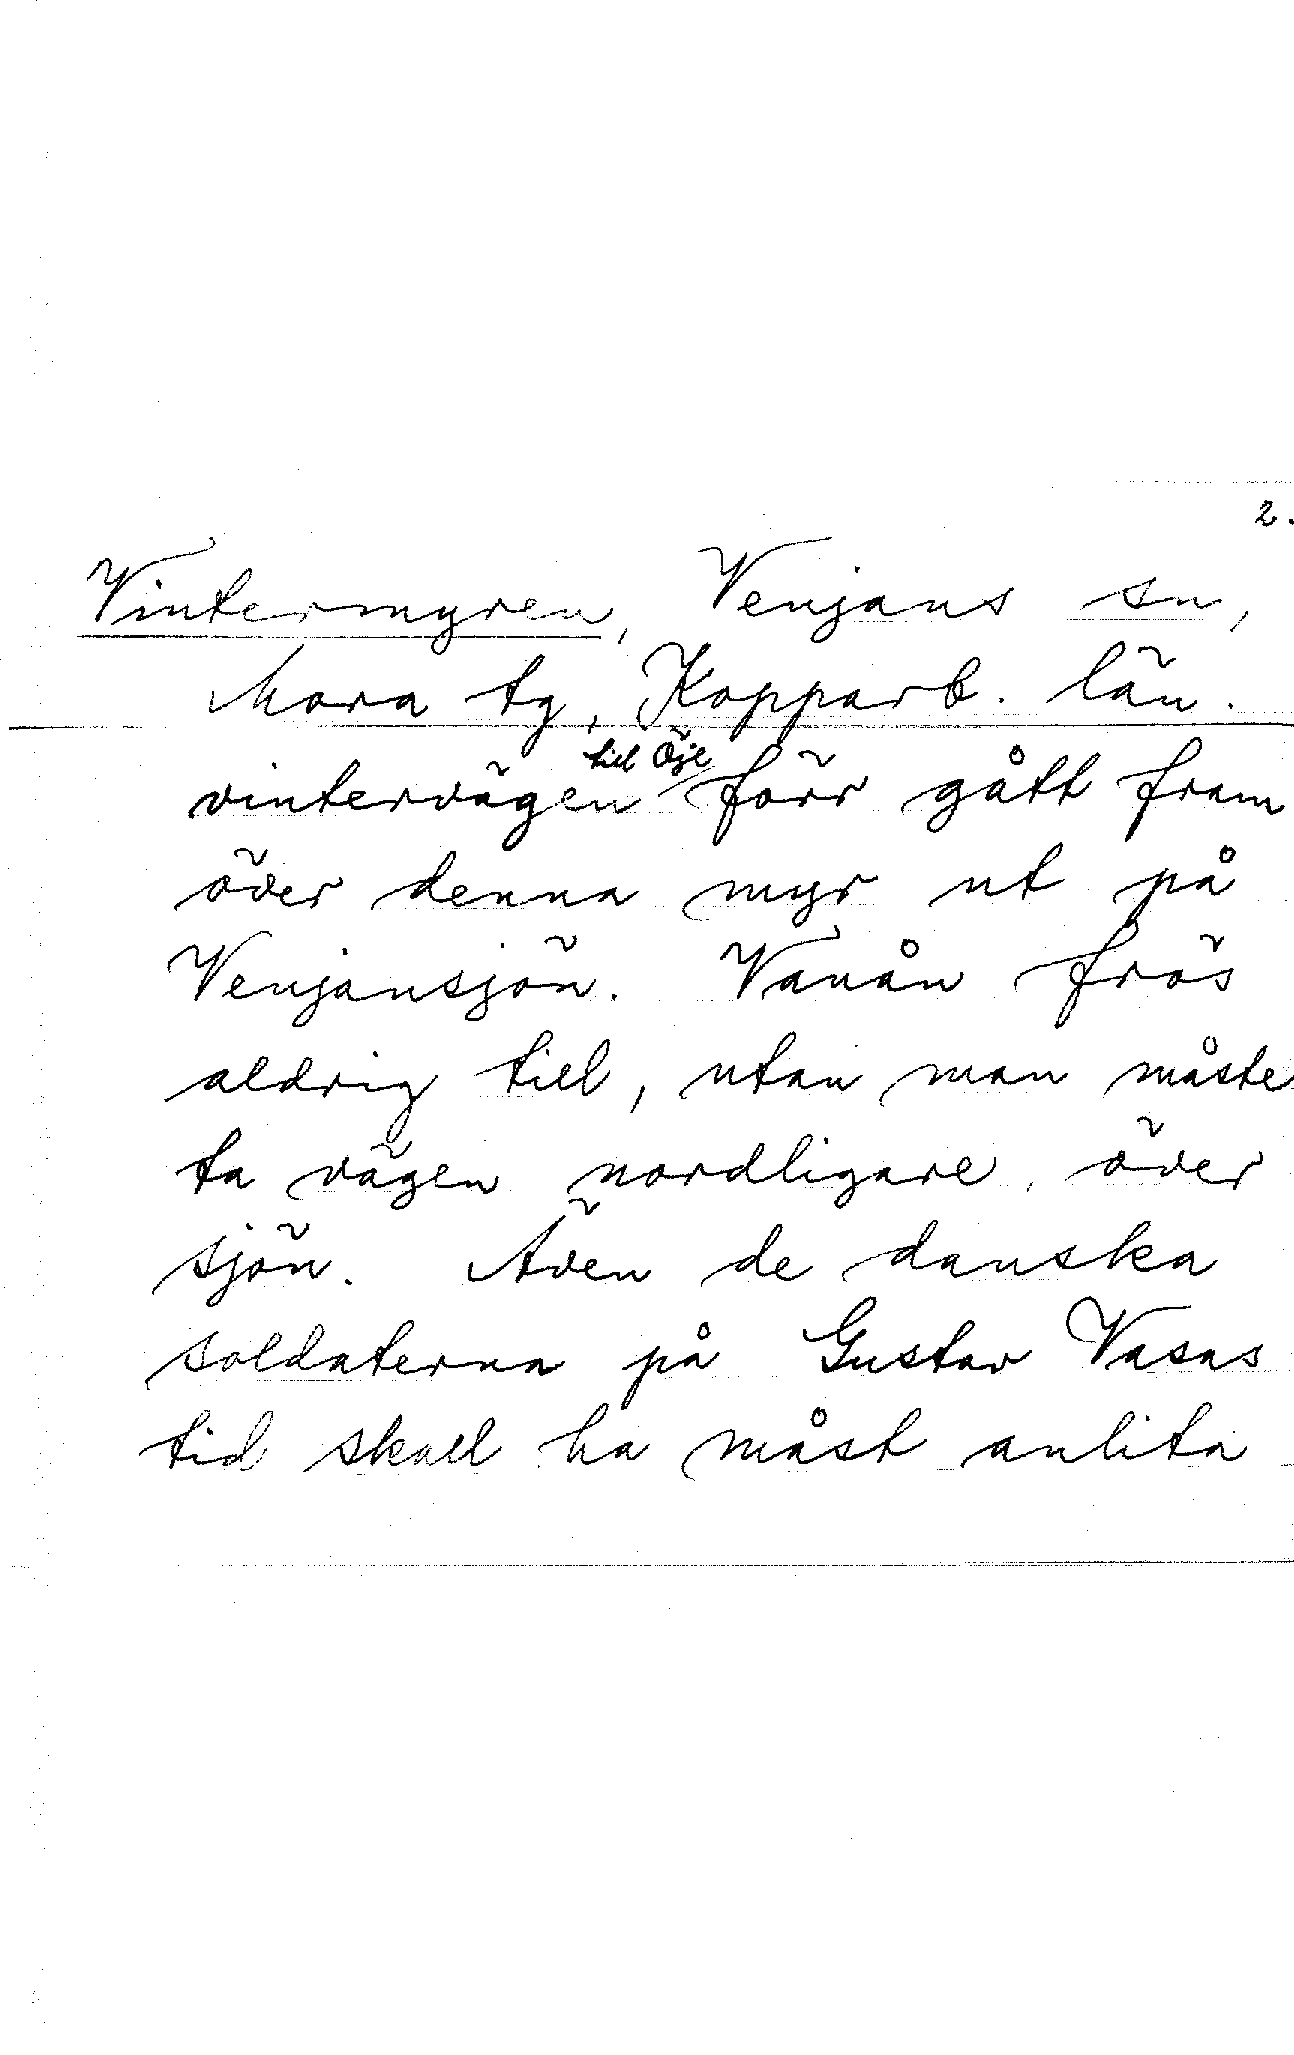 2.
Vintermyren, Venjans sn,
Mora tg, Kopparb. län.
till Öje
vintervägen förr gått fram
över denna myr ut på
Venjansjön. Vanån frös
aldrig till, utan man måste
ta vägen nordligare över
sjön. Även de danska
soldaterna på Gustav Vasas
tid skall ha måst anlita